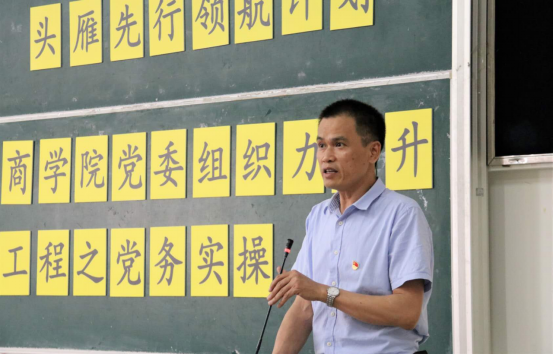 头雁先行领航计划
商学院党委组织力 升
工程之党务实操